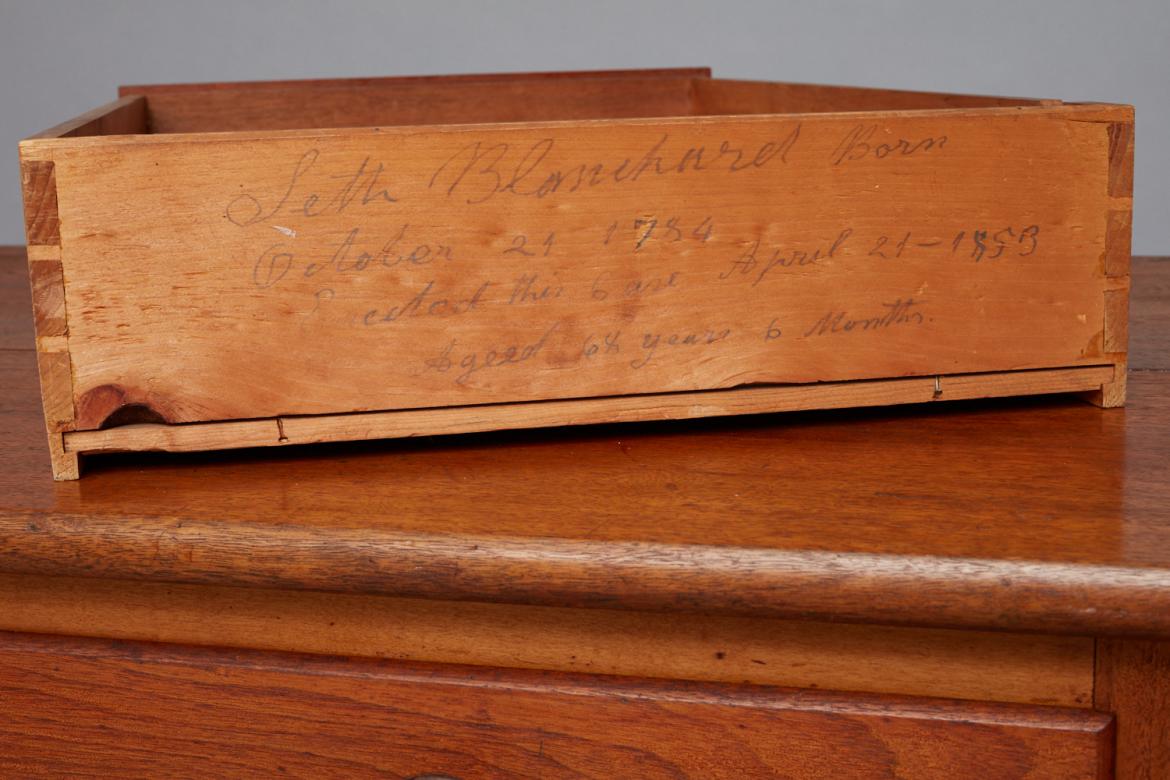 Seth Blanchard Born
October 21 1784
this Case April 21 - 1853
Ageed 68 years 6 Months.